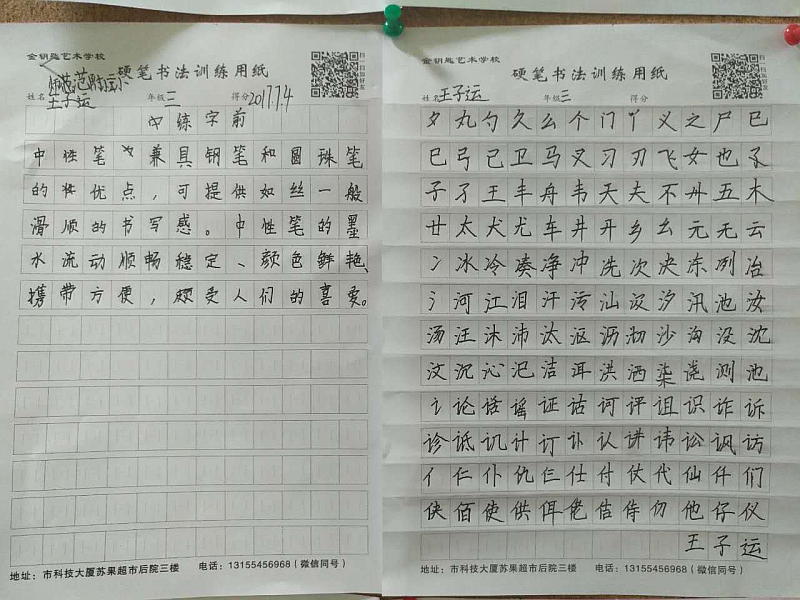 金钥匙艺术学校
硬笔书法训练用纸
姓名 王子运 年级 三 得分 2017.7.4
练字前
中性笔兼具钢笔和圆珠笔
的优点,可提供如丝一般
滑顺的书写感。中性笔的墨
水流动顺畅稳定、颜色鲜艳、
携带方便,颇受人们的喜爱。
地址:市科技大厦苏果超市后院三楼 电话:13155456968(微信同号)
金钥匙艺术学校
硬笔书法训练用纸
姓名 王子运 年级 三 得分
夕丸勺久么个门丫义之尸巳
巳弓己卫马叉刁刃飞女也孓
子孑王丰舟韦天夫不卅五木
廿太犬尤车井开乡幺元无云
冫冰冷凑净冲冼次决冻冽冶
氵河江泪汗污汕汲汐汛池汝
汤汪沐沛汰沤沥沏沙沟没沈
汶沉沁汜洁洱洪洒柒浇测池
讠论话谣证诂诃评诅识诈诉
诊诋讥计订讣认讲讳讼讽访
亻仁仆仇仨仕付仗代仙仟们
侠佰使供佴佬佶侍仂他仔仪
王子运
地址:市科技大厦苏果超市后院三楼 电话:13155456968(微信同号)